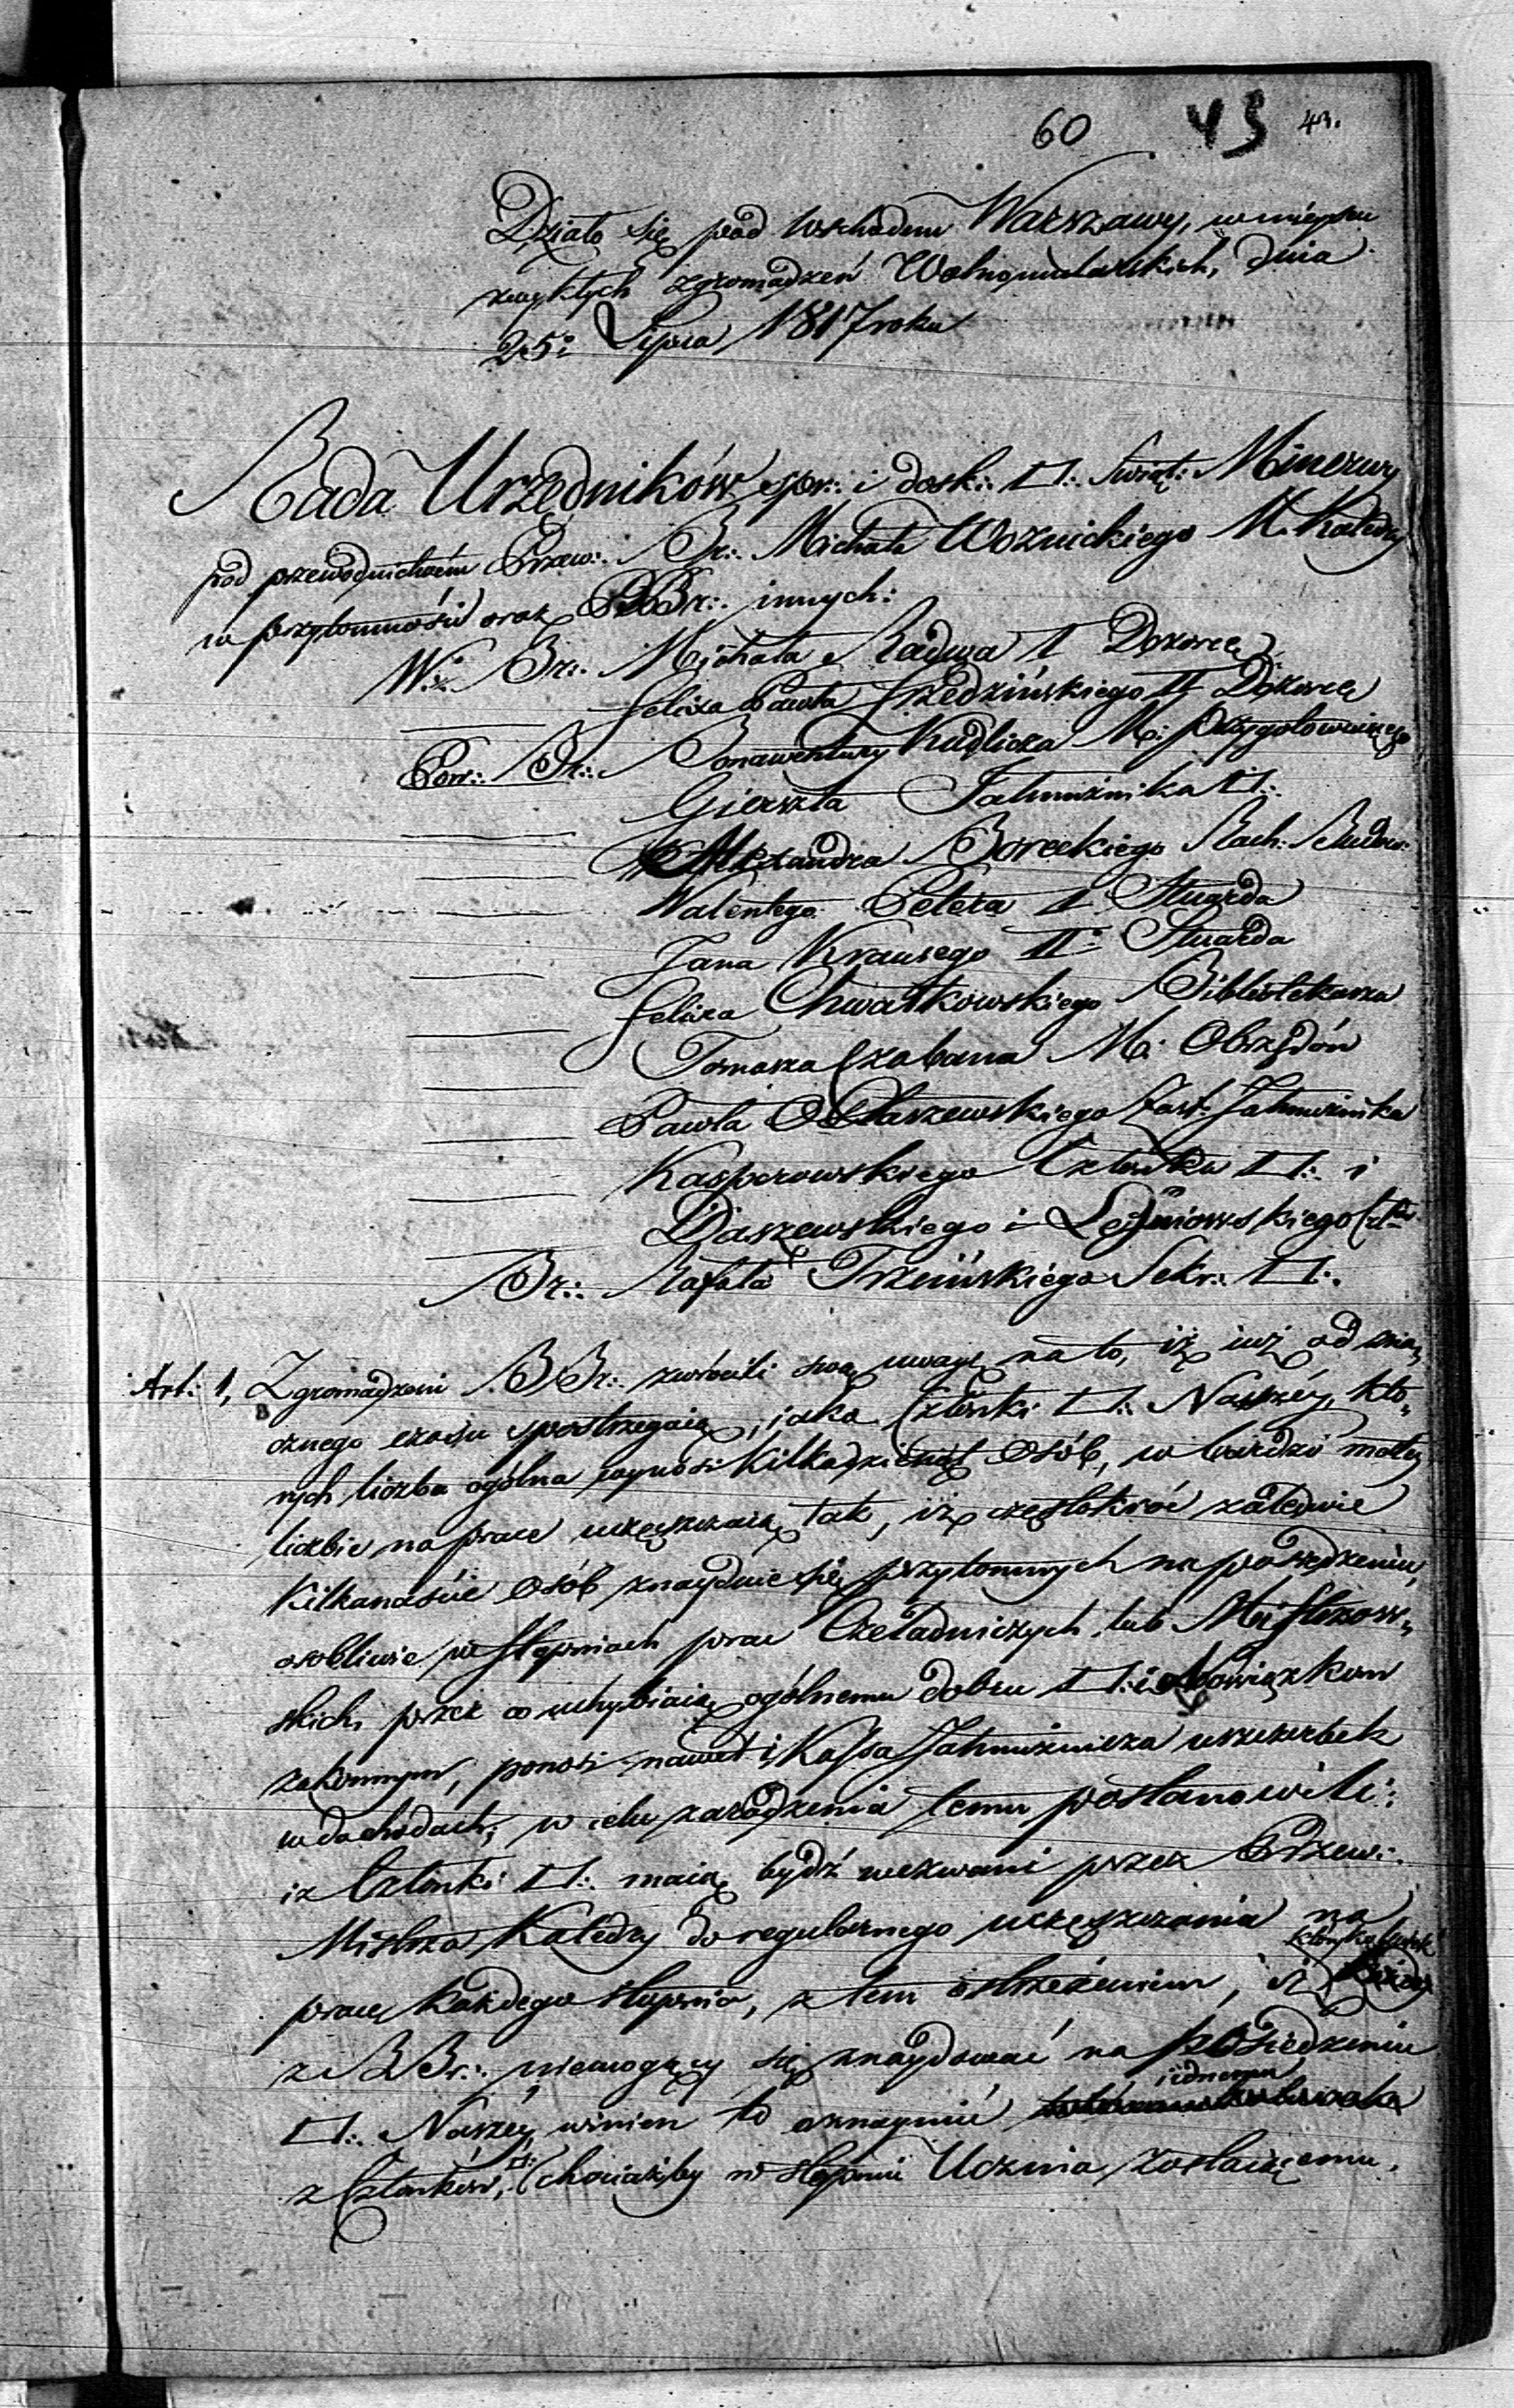 60 43 43.
Działo się pod Wschodem Warszawy, w mieyscu
zwykłych zgromadzeń Wolnomularskich, dnia
25: Lipca 1817 roku
Rada Urzędników spr: i dosk: □: Świąt: Minerwy
pod przewodnictwem Przew: Br: Michała Woznickiego M. Katedry
w przytomności oraz PBBr: innych:
W: Br: Michała Radwa I Dozorcę
Felixa Pawła Srzedzińskiego II Dozorcę
Pow: Br: Bonawentury Kudlicza M: Przygotowuiącego
Gierszta Jałmużnika □:
Alexandra Boreckiego Rach: Budow:
Walentego Peleta I Stuarda
Jana Krausego II: Stuarda
Felixa Chwałkowskiego Bibliotekarza
Tomasza Czabana M: Obrzędów
Pawła Ołdaszewskiego Zast: Jałmużnika
Kasperowskiego Członka □: i
Daszewskiego i Leśniowskiego Czł:
Br: Rafała Trzcińskiego Sekr: □:
Art: 1, Zgromadzeni BBr: zwrócili swą uwagę na to, iż iuż od zna„
cznego czasu spostrzegaią, iako Członki □: Naszéy, któ„
rych liczba ogólna wynosi kilkadziesiąt osób, w bardzo małey
liczbie na prace uczęszczaią tak, iż częstokroć zaledwie
kilkanaście osób znayduie się przytomnych na posiedzeniu,
osobliwie w stopniach prac Czeladniczych lub Mistrzow„
skich, przez co uchybiaią ogólnemu dobru □: i obowiązkom
zakonnym, ponosi nawet i Kassa Jałmużnicza uszczerbek
w dochodach; w celu zaradzenia temu postanowili:
iż Członki □: maią bydź wezwani przez Przew:
Mistrza Katedry do regularnego uczęszczania na
prace każdego stopnia, z tem ostrzeżeniem, iż
z BBr: niemogący się znaydować na posiedzeniu
iednemu
□: Naszéy winien to oznaymić
z Członków □: (chociażby w stopniu Ucznia zostaiącemu.